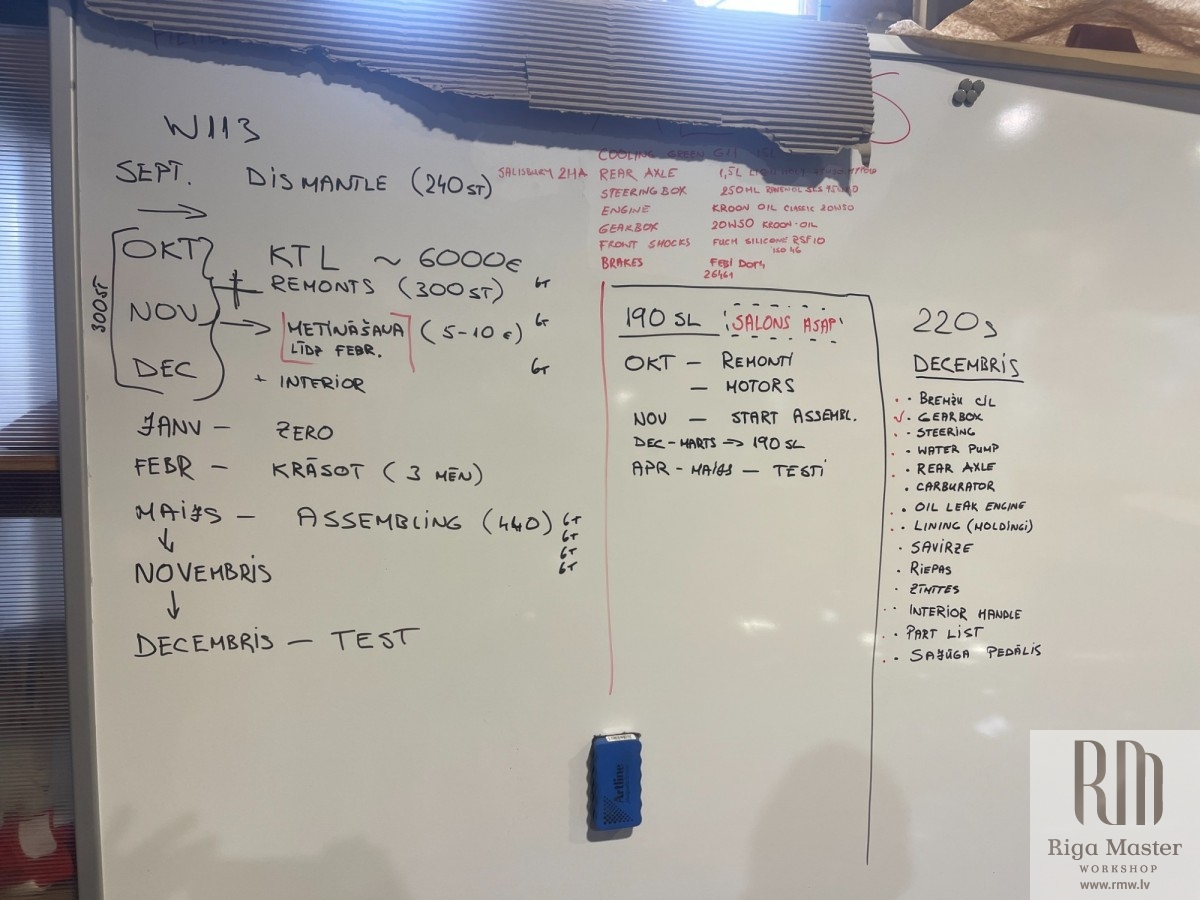 W113
SEPT. DISMANTLE (240ST)
300ST
OKT
NOV
DEC
KTL ~ 6000€
REMONTS (300ST) 6T
METINĀŠANA (5-10€) 6T
LĪDZ FEBR.
6T
+ INTERIOR
JANV - ZERO
FEBR - KRĀSOT (3 MĒN)
MAIJS - ASSEMBLING (440) 6T
6T
6T
6T
NOVEMBRIS
DECEMBRIS - TEST
COOLING GREEN G11
SALISBURY 2HA REAR AXLE 1,5L
STEERING BOX 250ML
ENGINE KROON OIL CLASSIC 20W50
GEARBOX 20W50 KROON-OIL
FRONT SHOCKS FUCH SILICONE RSF10
ISO 46
BRAKES FEBI DOT4
26461
190 SL SALONS ASAP
OKT - REMONTI
- MOTORS
NOV - START ASSEMBL.
DEC-MARTS => 190 SL
APR - MAIJS - TESTI
220S
DECEMBRIS
· BREMŽU C/L
· GEARBOX
· STEERING
· WATER PUMP
· REAR AXLE
· CARBURATOR
· OIL LEAK ENGINE
· LINING (MOLDINGI)
· SAVIRZE
· RIEPAS
· ZĪMĪTES
· INTERIOR HANDLE
· PART LIST
· SAJŪGA PEDĀLIS
Artline
RM
Riga Master
WORKSHOP
www.rmw.lv